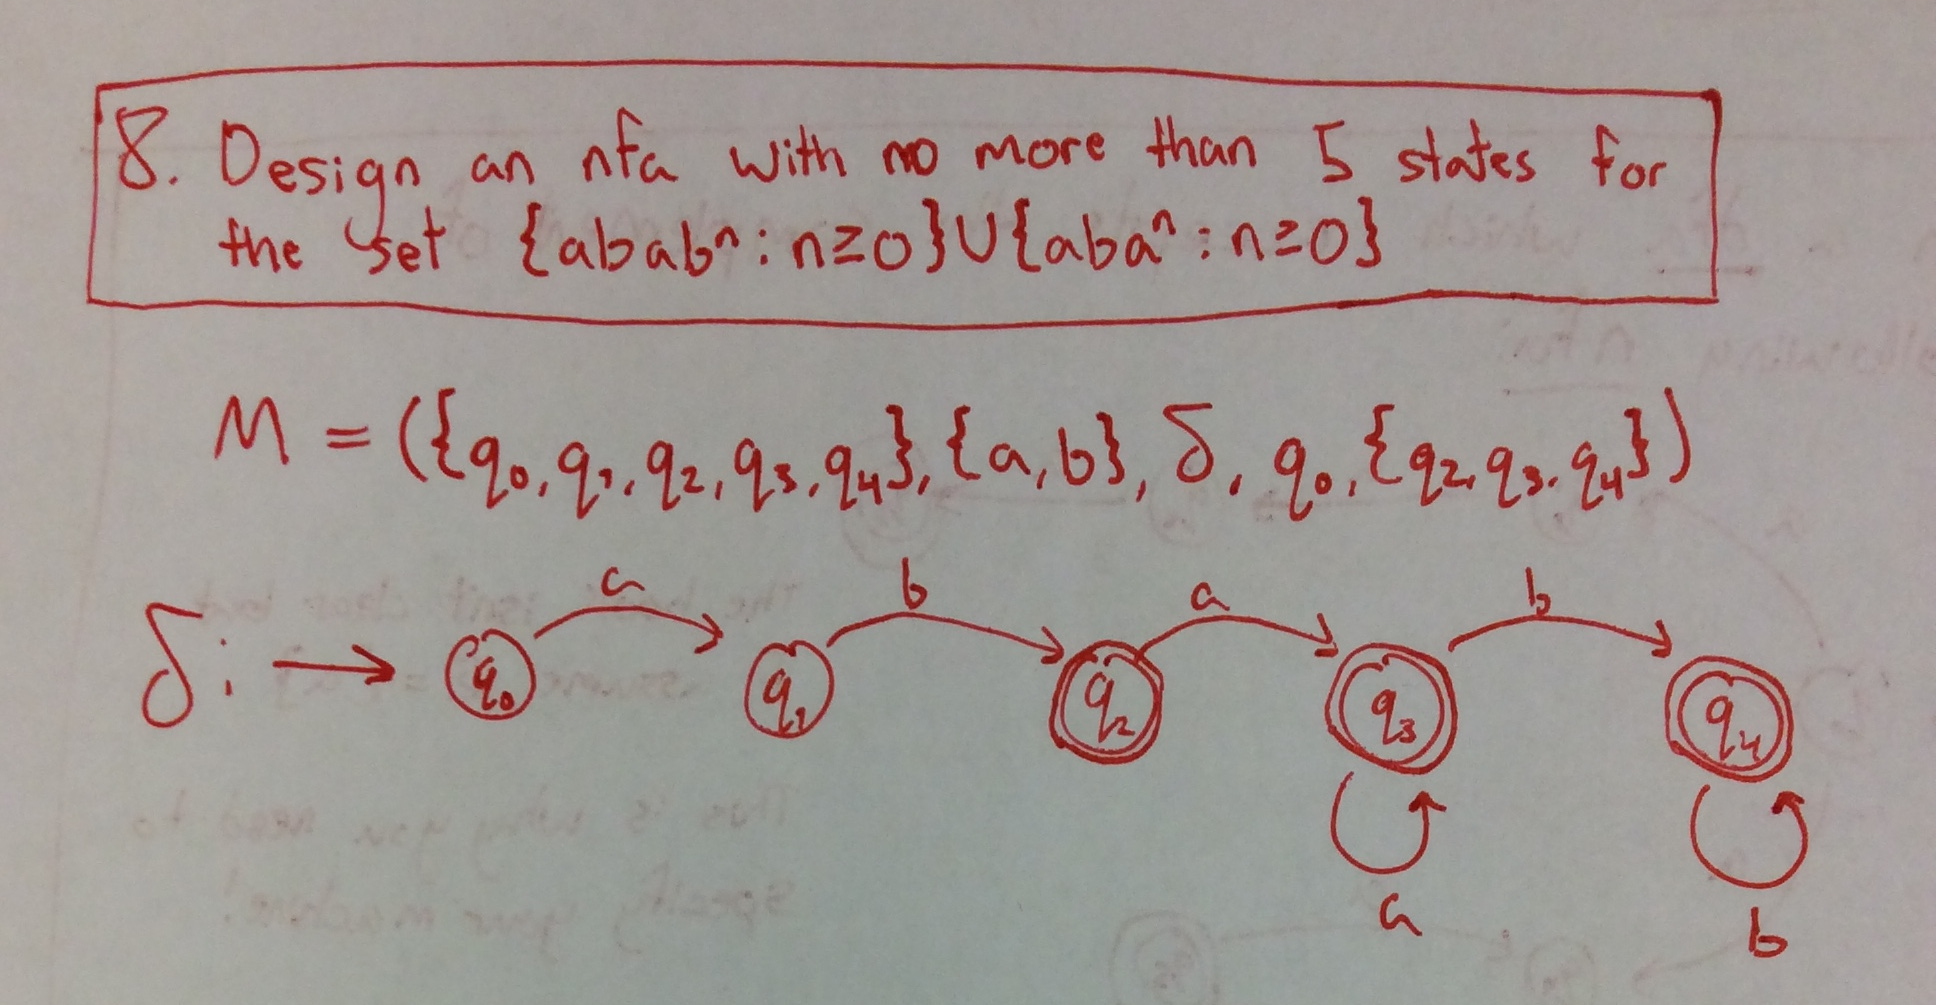 8. Design an nfa with no more than 5 states for
the set {ababⁿ : n≥0}∪{abaⁿ : n≥0}
M = ({q₀, q₁, q₂, q₃, q₄}, {a, b}, δ, q₀, {q₂, q₃, q₄})
a b a b
δ: q₀ q₁ q₂ q₃ q₄
a b